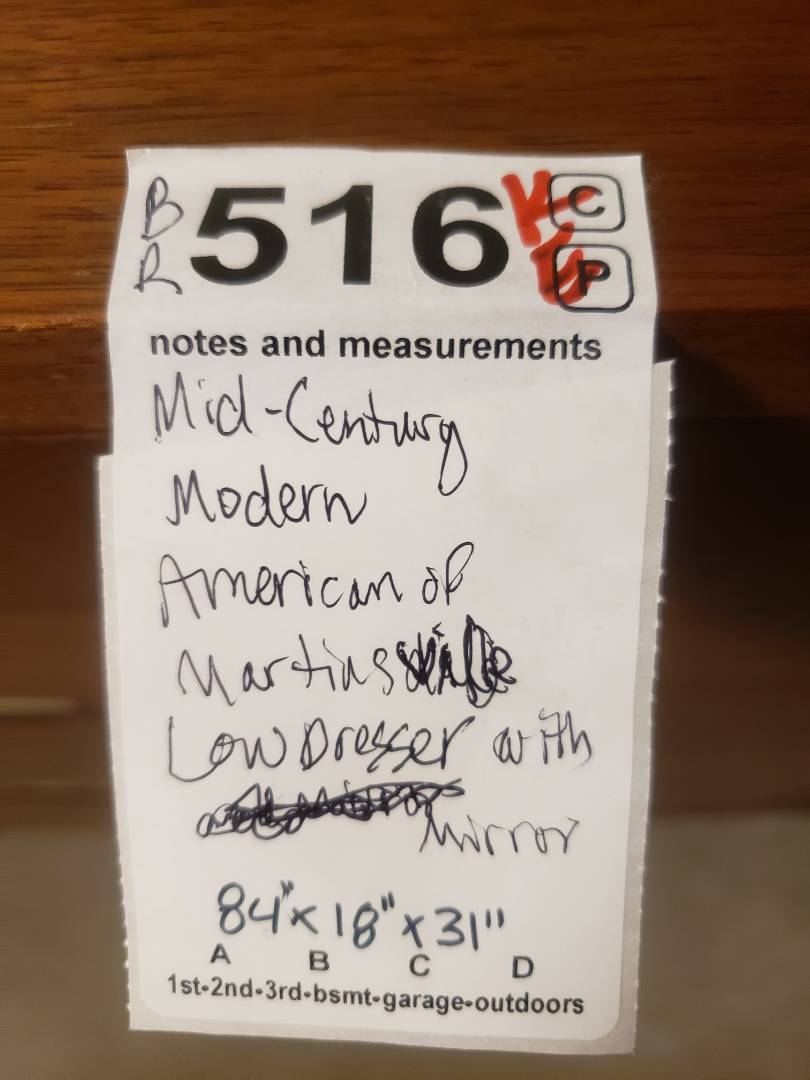 BR 516 C
P
notes and measurements
Mid-Century
Modern
American of
Martinsville
Low Dresser with
Mirror
84"x 18" x 31"
A B C D
1st-2nd-3rd-bsmt-garage-outdoors